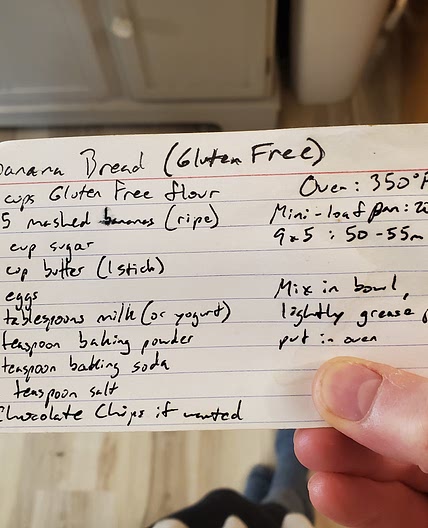 Banana Bread (Gluten Free)
cups Gluten Free flour
5 mashed bananas (ripe)
cup sugar
cup butter (1 stick)
eggs
tablespoons milk (or yogurt)
teaspoon baking powder
teaspoon baking soda
teaspoon salt
Chocolate Chips if wanted
Oven: 350°F
Mini-loaf pan: 2
9x5: 50-55m
Mix in bowl,
lightly grease
put in oven